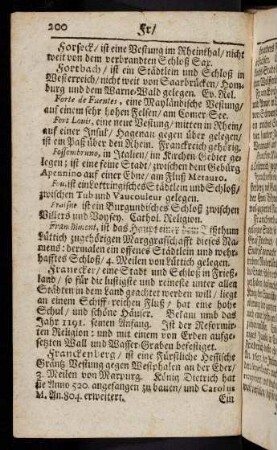 200 Fr/
Forseck/ ist eine Vestung im Rheinthal/ nicht
weit von dem verbrandten Schloß Sax.
Fortbach/ ist ein Städtlein und Schloß in
Westerreich/ nicht weit von Saarbrücken/ Hom-
burg und dem Warne-Wald gelegen. Ev. Rel.
Forte de Fuentes, eine Mayländische Vestung/
auf einem sehr hohen Felsen/ am Comer See.
Fort Louis, eine neue Vestung/ mitten in Rhein/
auf einer Insul/ Hagenau gegen über gelegen/
ist ein Paß über den Rhein. Franckreich gehörig.
Fossombruno, in Italien/ im Kirchen Gebiet ge-
legen; ist eine feine Stadt/ zwischen dem Gebürg
Apennino auf einer Ebne/ am Fluß Metauro.
Fou, ist ein Lottringisches Städtlein und Schloß/
zwischen Tub und Vaucouleur gelegen.
Fraisne ist ein Burgundisches Schloß zwischen
Villers und Voysey. Cathol. Religion.
Franchimont, ist das Haupt einer dem Bisthum
Lüttich zugehörigen Marggrafschafft dieses Na-
mens: vormalen ein offenes Städtlein und wehr-
hafftes Schloß/ 4. Meilen von Lüttich gelegen.
Franecker/ eine Stadt und Schloß in Frieß-
land/ so für die lustigste und reineste unter allen
Städten in dem Land geachtet worden will/ liegt
an einem Schiff-reichen Fluß/ hat eine hohe
Schul/ und schöne Häuser. Bekam und das
Jahr 1191. seinen Anfang. Ist der Reformir-
ten Religion: und mit einem von Erden aufge-
setzten Wall und Wasser-Graben befestiget.
Franckenberg/ ist eine Fürstliche Hessische
Gräntz Vestung gegen Westphalen an der Eder/
3. Meilen von Marpurg. König Dietrich hat
sie Anno 520. angefangen zu bauen/ und Carolus
M. An. 804. erweitert. Ein